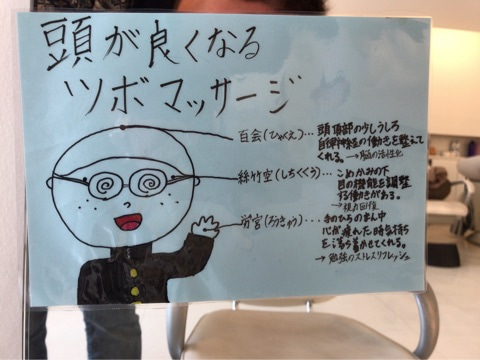 頭が良くなる
ツボマッサージ
百会(ひゃくえ)…頭頂部の少しうしろ
自律神経の働きを整えて
くれる。→脳の活性化
絲竹空(しちくくう)…こめかみの下
目の機能を調整
する働きがある。
→視力回復
労宮(ろうきゅう)…手のひらのまん中
心が疲れた時気持ち
を落ち着かせてくれる。
→勉強のストレスリフレッシュ